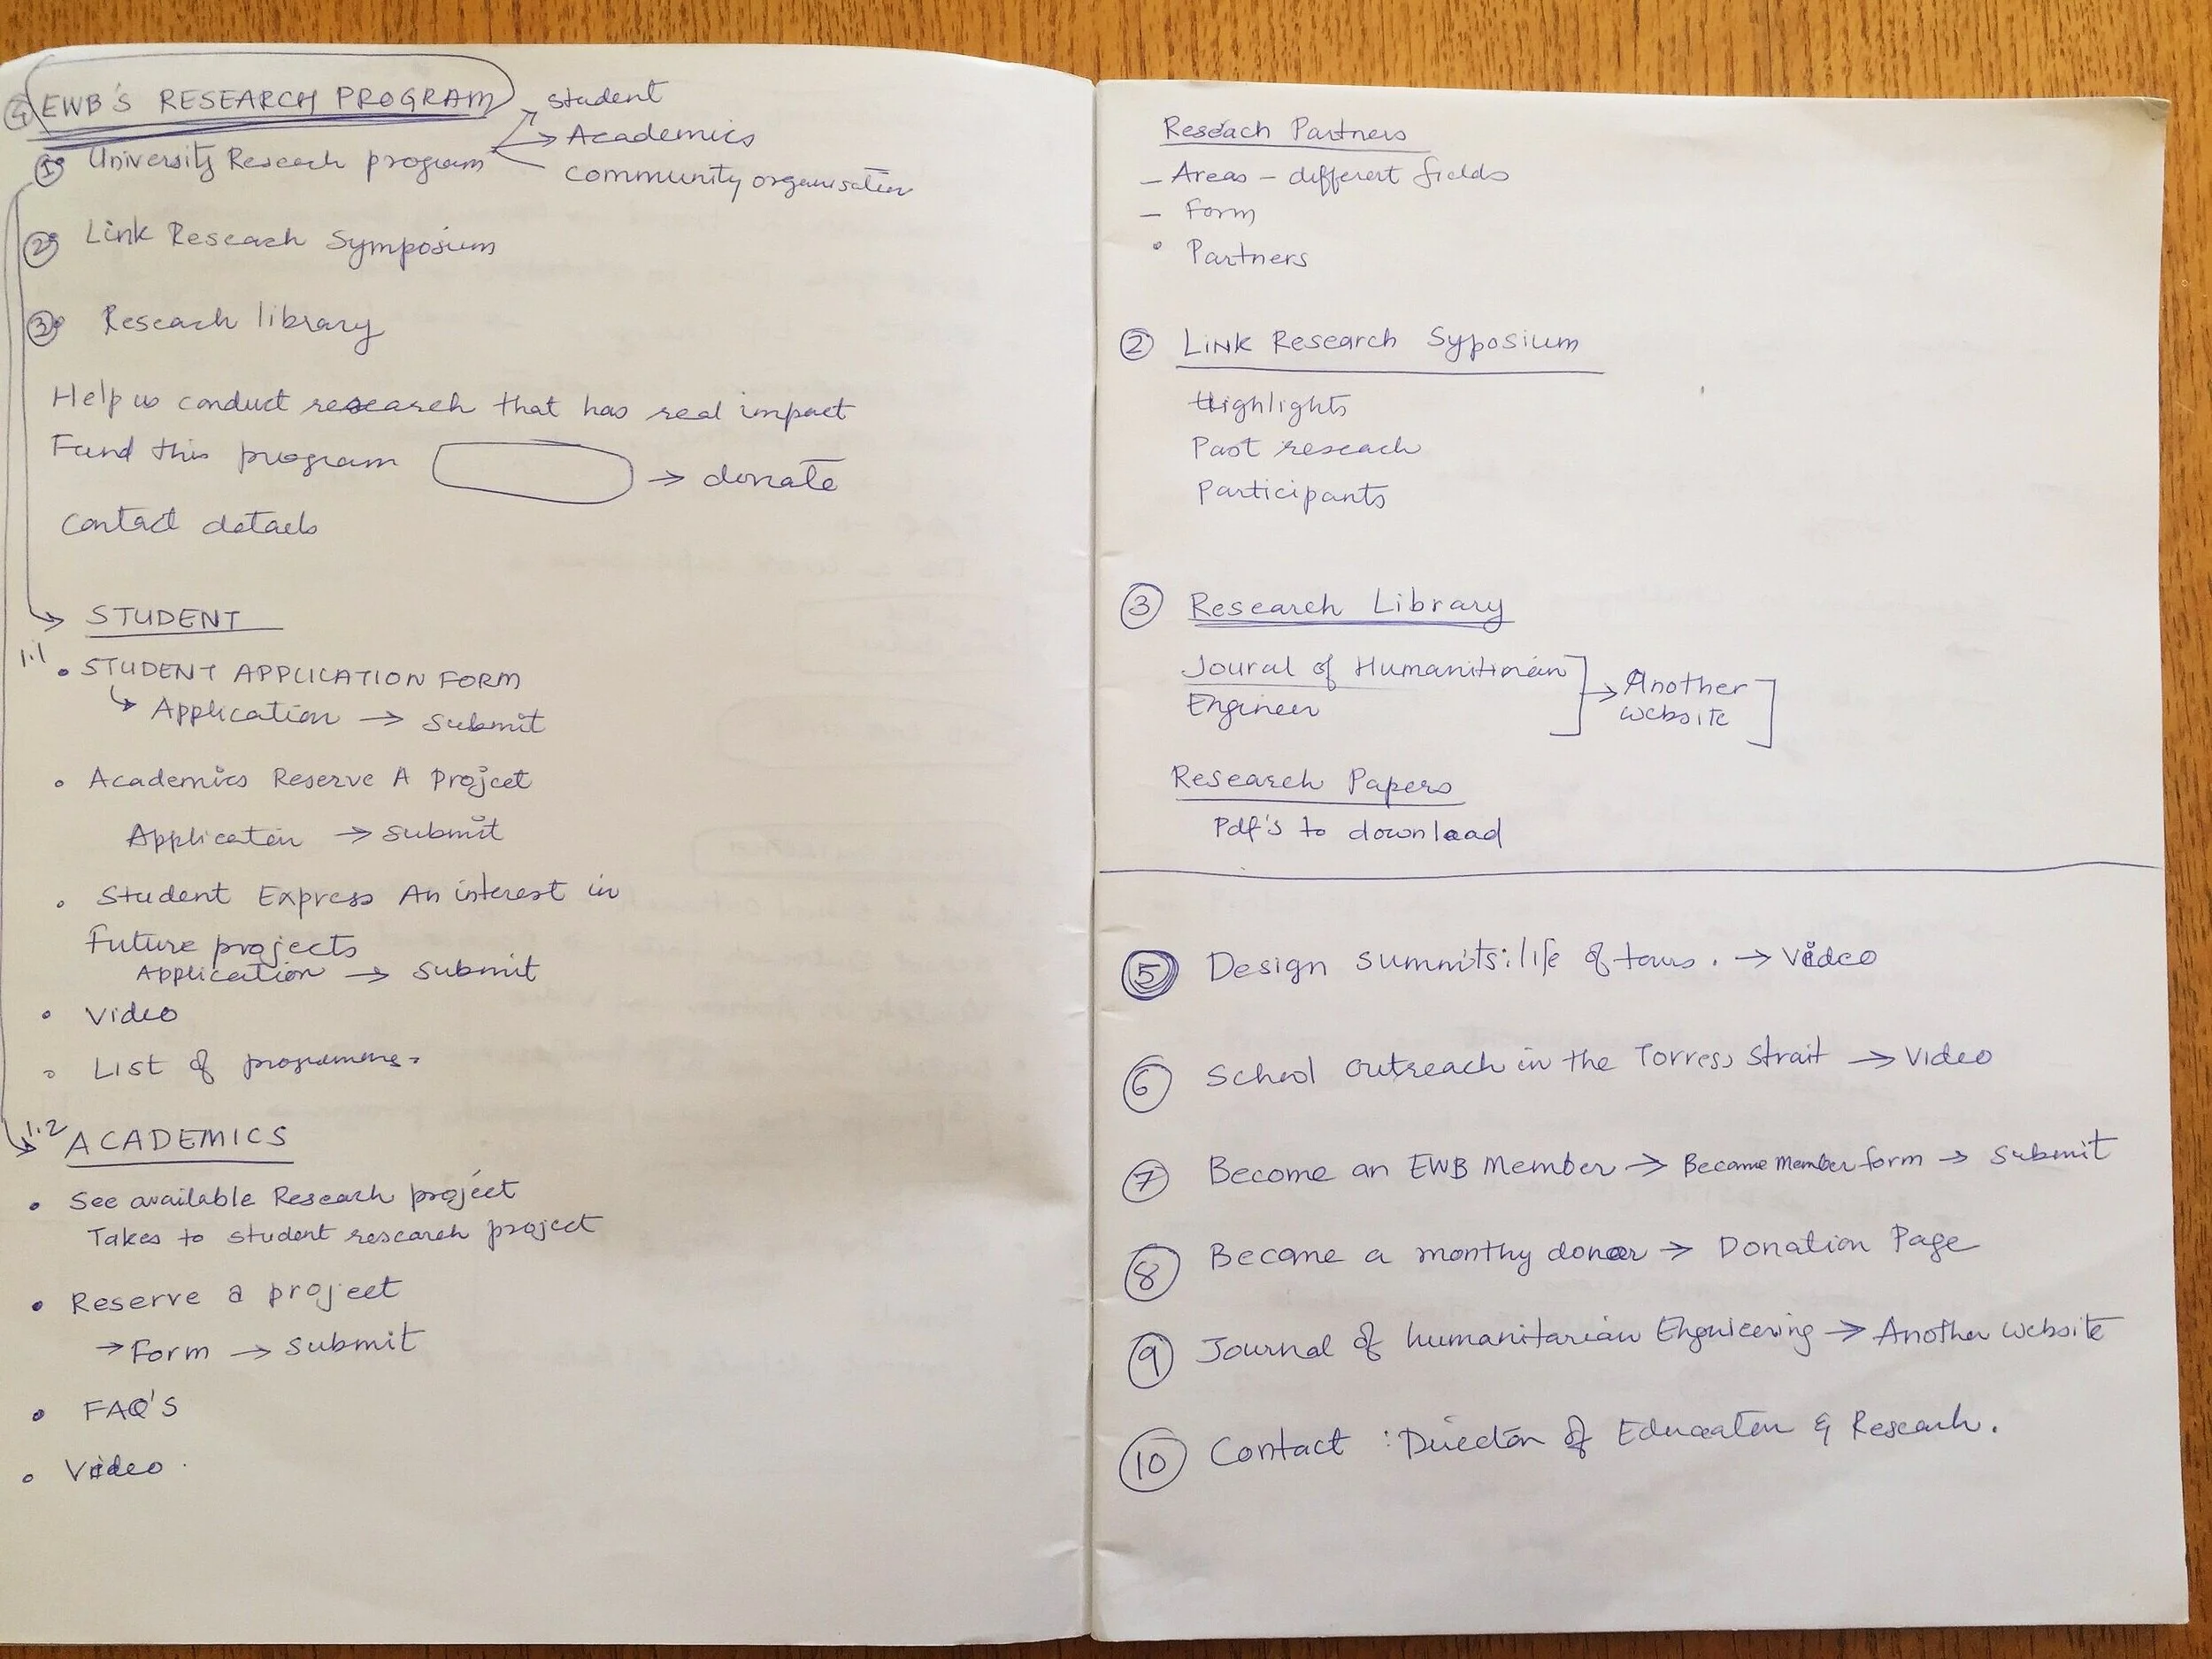 4 EWB'S RESEARCH PROGRAM
student
1 University Reseach program → Academics
community organisation
2 Link Reseach Symposium
3 Reseach library
Help us conduct research that has real impact
Fund this program → donate
Contact details
→ STUDENT
1.1
• STUDENT APPLICATION FORM
↳ Application → Submit
• Academics Reserve A Project
Application → submit
• Student Express An interest in
Future projects
Application → submit
• Video
• List of programmes.
1.2
→ ACADEMICS
• See available Reseach project
Takes to student research project
• Reserve a project
→ Form → submit
• FAQ'S
• Video.
Reseach Partners
– Areas – different fields
– Form
• Partners
2 Link Research Syposium
Highlights
Past reseach
Participants
3 Research Library
Joural of Humanitirian
Engineer
→ Another
website
Research Papers
Pdf's to download
5 Design summits: life of tours. → Video
6 School outreach in the Torress Strait → Video
7 Become an EWB Member → Become Member form → Submit
8 Become a monthy donor → Donation Page
9 Journal of humanitarian Engnieering → Another website
10 Contact : Director of Education & Reseach.